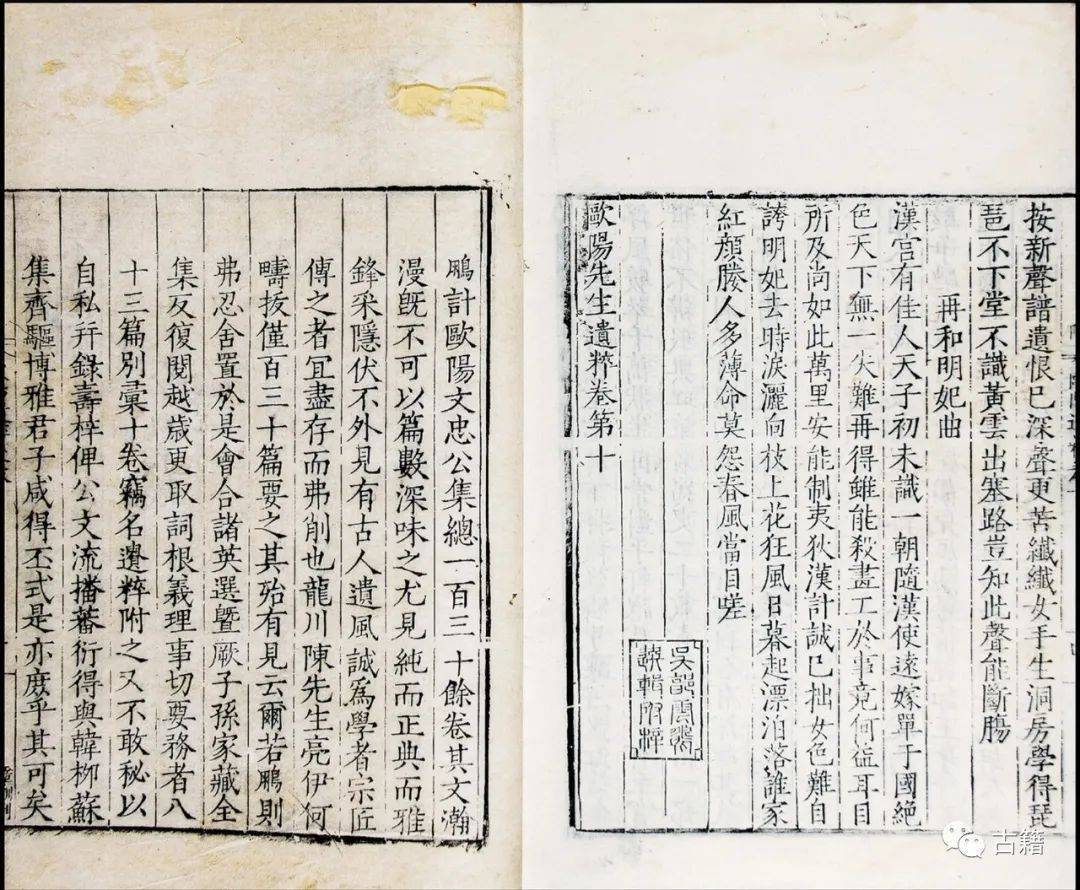 按新聲譜遺恨已深聲更苦纖纖女手生洞房學得琵
琶不下堂不識黃雲出塞路豈知此聲能斷腸
再和明妃曲
漢宮有佳人天子初未識一朝隨漢使遂嫁單于國絕
色天下無一失難再得雖能殺畫工於事竟何益耳目
所及尚如此萬里安能制夷狄漢計誠已拙女色難自
誇明妃去時淚灑向枝上花狂風日暮起漂泊落誰家
紅顏勝人多薄命莫怨春風當自嗟
歐陽先生遺粹卷第十
鵬計歐陽文忠公集總一百三十餘卷其文瀚
漫旣不可以篇數深味之尤見純而正典而雅
鋒采隱伏不外見有古人遺風誠爲學者宗匠
傳之者宜盡存而弗削也龍川陳先生亮伊何
疇拔僅百三十篇要之其殆有見云爾若鵬則
弗忍舍置於是會合諸英選曁厥子孫家藏全
集反復閱越歲更取詞根義理事切要務者八
十三篇別彙十卷竊名遺粹附之又不敢秘以
自私幷錄壽梓俾公文流播蕃衍得與韓柳蘇
集齊驅博雅君子咸得丕式是亦庶乎其可矣
古籍